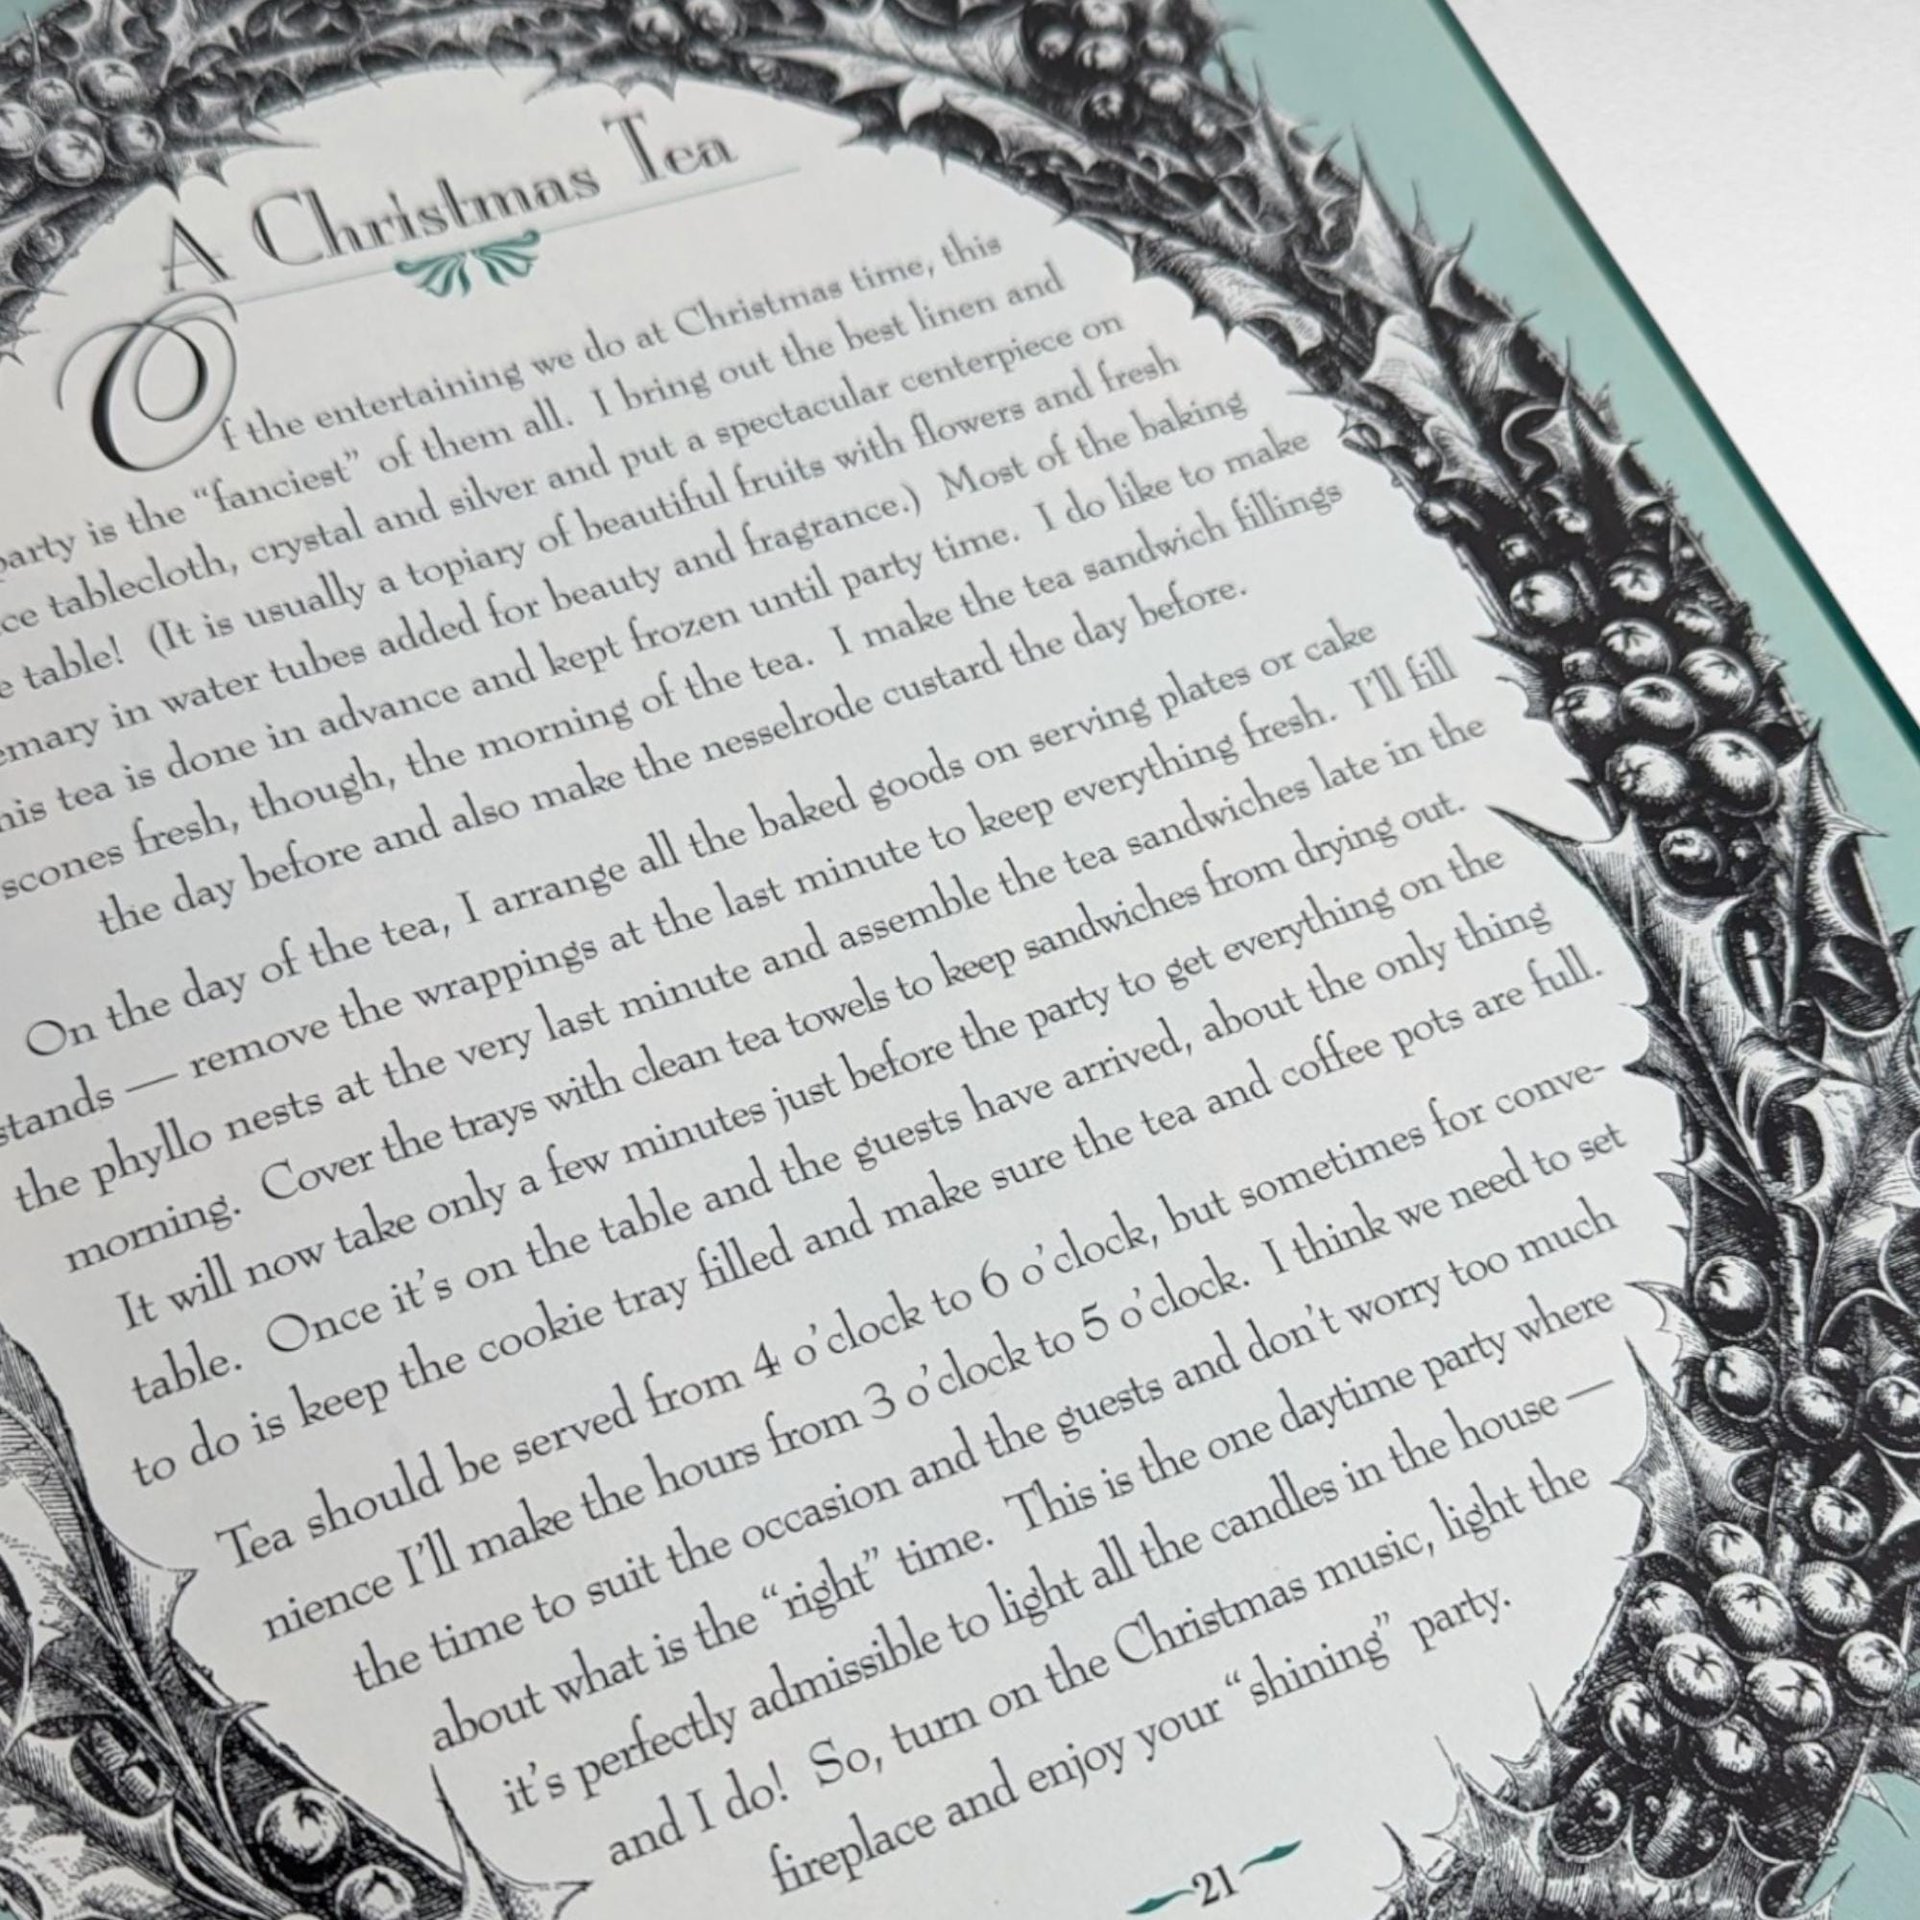 A Christmas Tea
Of the entertaining we do at Christmas time, this
party is the “fanciest” of them all. I bring out the best linen and
ce tablecloth, crystal and silver and put a spectacular centerpiece on
e table! (It is usually a topiary of beautiful fruits with flowers and fresh
emary in water tubes added for beauty and fragrance.) Most of the baking
his tea is done in advance and kept frozen until party time. I do like to make
scones fresh, though, the morning of the tea. I make the tea sandwich fillings
the day before and also make the nesselrode custard the day before.
On the day of the tea, I arrange all the baked goods on serving plates or cake
stands — remove the wrappings at the last minute to keep everything fresh. I’ll fill
the phyllo nests at the very last minute and assemble the tea sandwiches late in the
morning. Cover the trays with clean tea towels to keep sandwiches from drying out.
It will now take only a few minutes just before the party to get everything on the
table. Once it’s on the table and the guests have arrived, about the only thing
to do is keep the cookie tray filled and make sure the tea and coffee pots are full.
Tea should be served from 4 o’clock to 6 o’clock, but sometimes for conve-
nience I’ll make the hours from 3 o’clock to 5 o’clock. I think we need to set
the time to suit the occasion and the guests and don’t worry too much
about what is the “right” time. This is the one daytime party where
it’s perfectly admissible to light all the candles in the house —
and I do! So, turn on the Christmas music, light the
fireplace and enjoy your “shining” party.
21